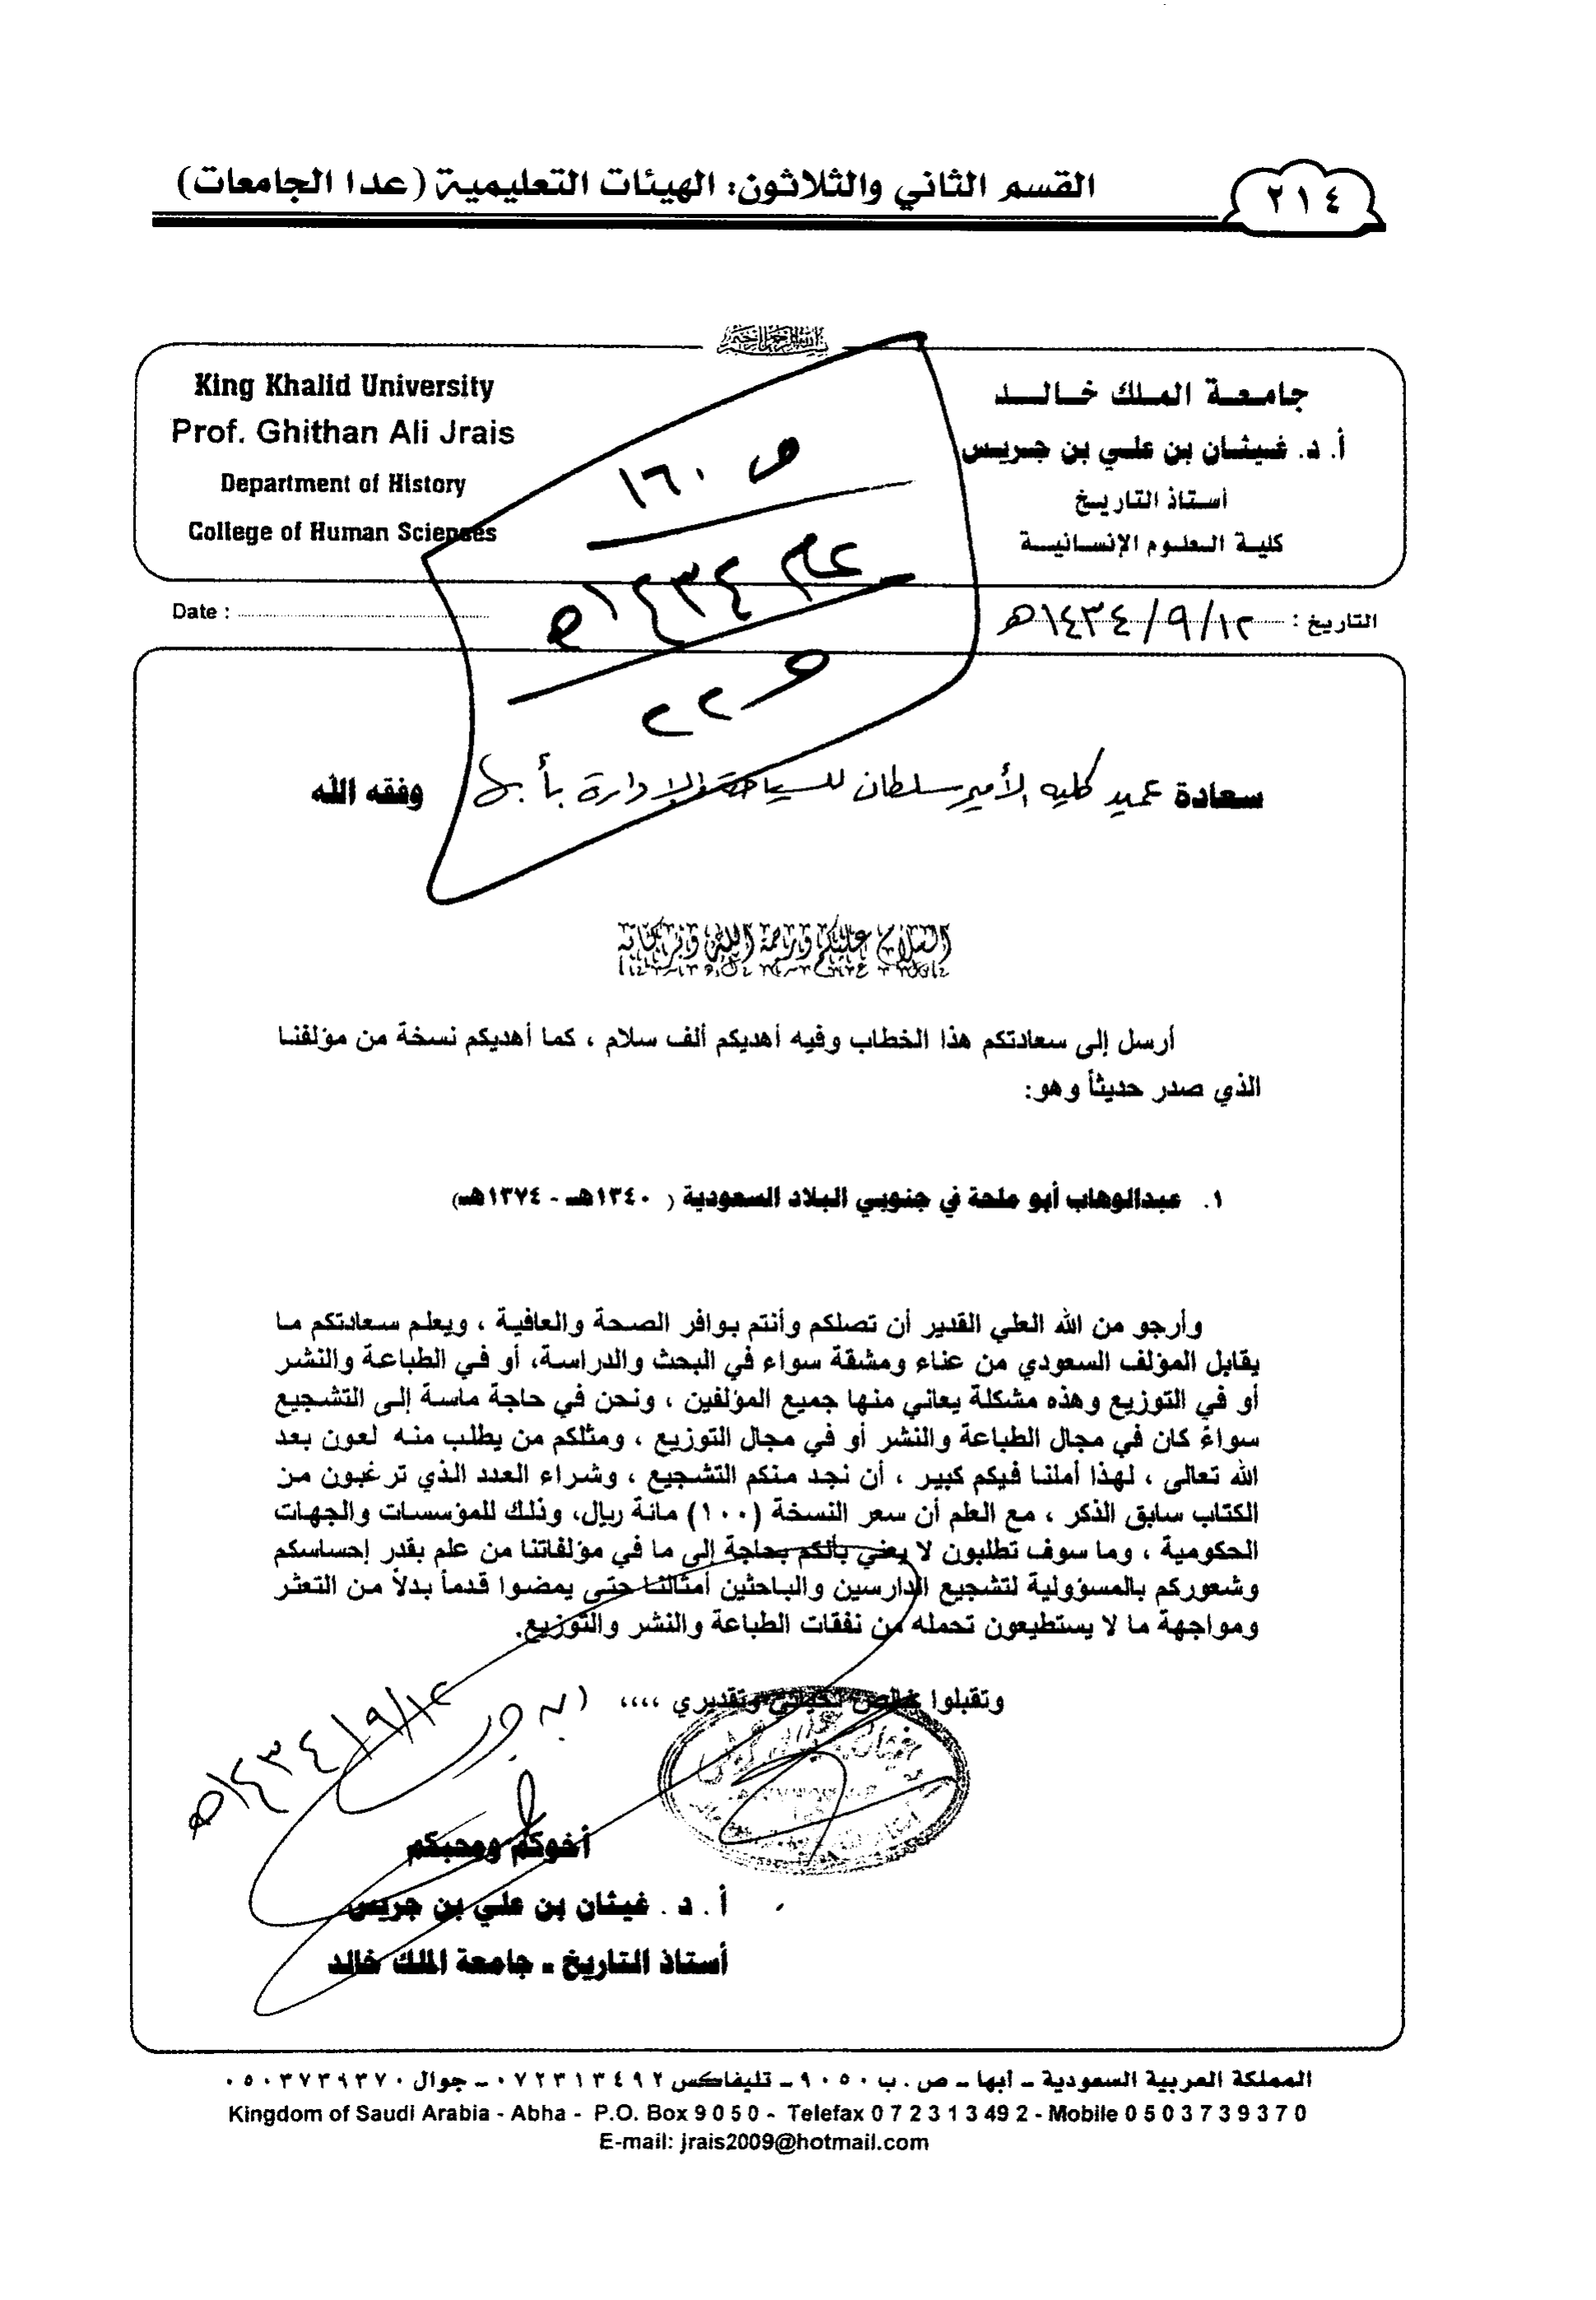 القسم الثاني والثلاثون: الهيئات التعليمية (عدا الجامعات)
٢١٤
King Khalid University
Prof. Ghithan Ali Jrais
Department of History
College of Human Scienses
جامعة الملك خالد
أ. د. غيثان بن علي بن جريس
أستاذ التاريخ
كلية العلوم الإنسانية
ص ١٦٠
عام ١٤٣٤هـ
٢٢
Date :
التاريخ : ١٤٣٤/٩/١٢هـ
سعادة عميد كلية الأمير سلطان للسياحة والإدارة بأبها وفقه الله
السلام عليكم ورحمة الله وبركاته
أرسل إلى سعادتكم هذا الخطاب وفيه أهديكم ألف سلام ، كما أهديكم نسخة من مؤلفنا
الذي صدر حديثاً وهو:
١. عبدالوهاب أبو ملحة في جنوبي البلاد السعودية ( ١٣٤٠هـ - ١٣٧٤هـ)
وأرجو من الله العلي القدير أن تصلكم وأنتم بوافر الصحة والعافية ، ويعلم سعادتكم ما
يقابل المؤلف السعودي من عناء ومشقة سواء في البحث والدراسة، أو في الطباعة والنشر
أو في التوزيع وهذه مشكلة يعاني منها جميع المؤلفين ، ونحن في حاجة ماسة إلى التشجيع
سواءً كان في مجال الطباعة والنشر أو في مجال التوزيع ، ومثلكم من يطلب منه لعون بعد
الله تعالى ، لهذا أملنا فيكم كبير ، أن نجد منكم التشجيع ، وشراء العدد الذي ترغبون من
الكتاب سابق الذكر ، مع العلم أن سعر النسخة (١٠٠) مائة ريال، وذلك للمؤسسات والجهات
الحكومية ، وما سوف تطلبون لا يعني بأنكم بحاجة إلى ما في مؤلفاتنا من علم بقدر إحساسكم
وشعوركم بالمسؤولية لتشجيع الدارسين والباحثين أمثالنا حتى يمضوا قدماً بدلاً من التعثر
ومواجهة ما لا يستطيعون تحمله من نفقات الطباعة والنشر والتوزيع.
وتقبلوا خالص تحياتي وتقديري ،،،،
١٤٣٤/٩/١٢هـ
أخوكم ومحبكم
أ . د . غيثان بن علي بن جريس
أستاذ التاريخ - جامعة الملك خالد
المملكة العربية السعودية - أبها - ص . ب ٩٠٥٠ - تليفاكس ٠٧٢٣١٣٤٩٢ - جوال ٠٥٠٣٧٣٩٣٧٠
Kingdom of Saudi Arabia - Abha - P.O. Box 9 0 5 0 - Telefax 0 7 2 3 1 3 49 2 - Mobile 0 5 0 3 7 3 9 3 7 0
E-mail: jrais2009@hotmail.com